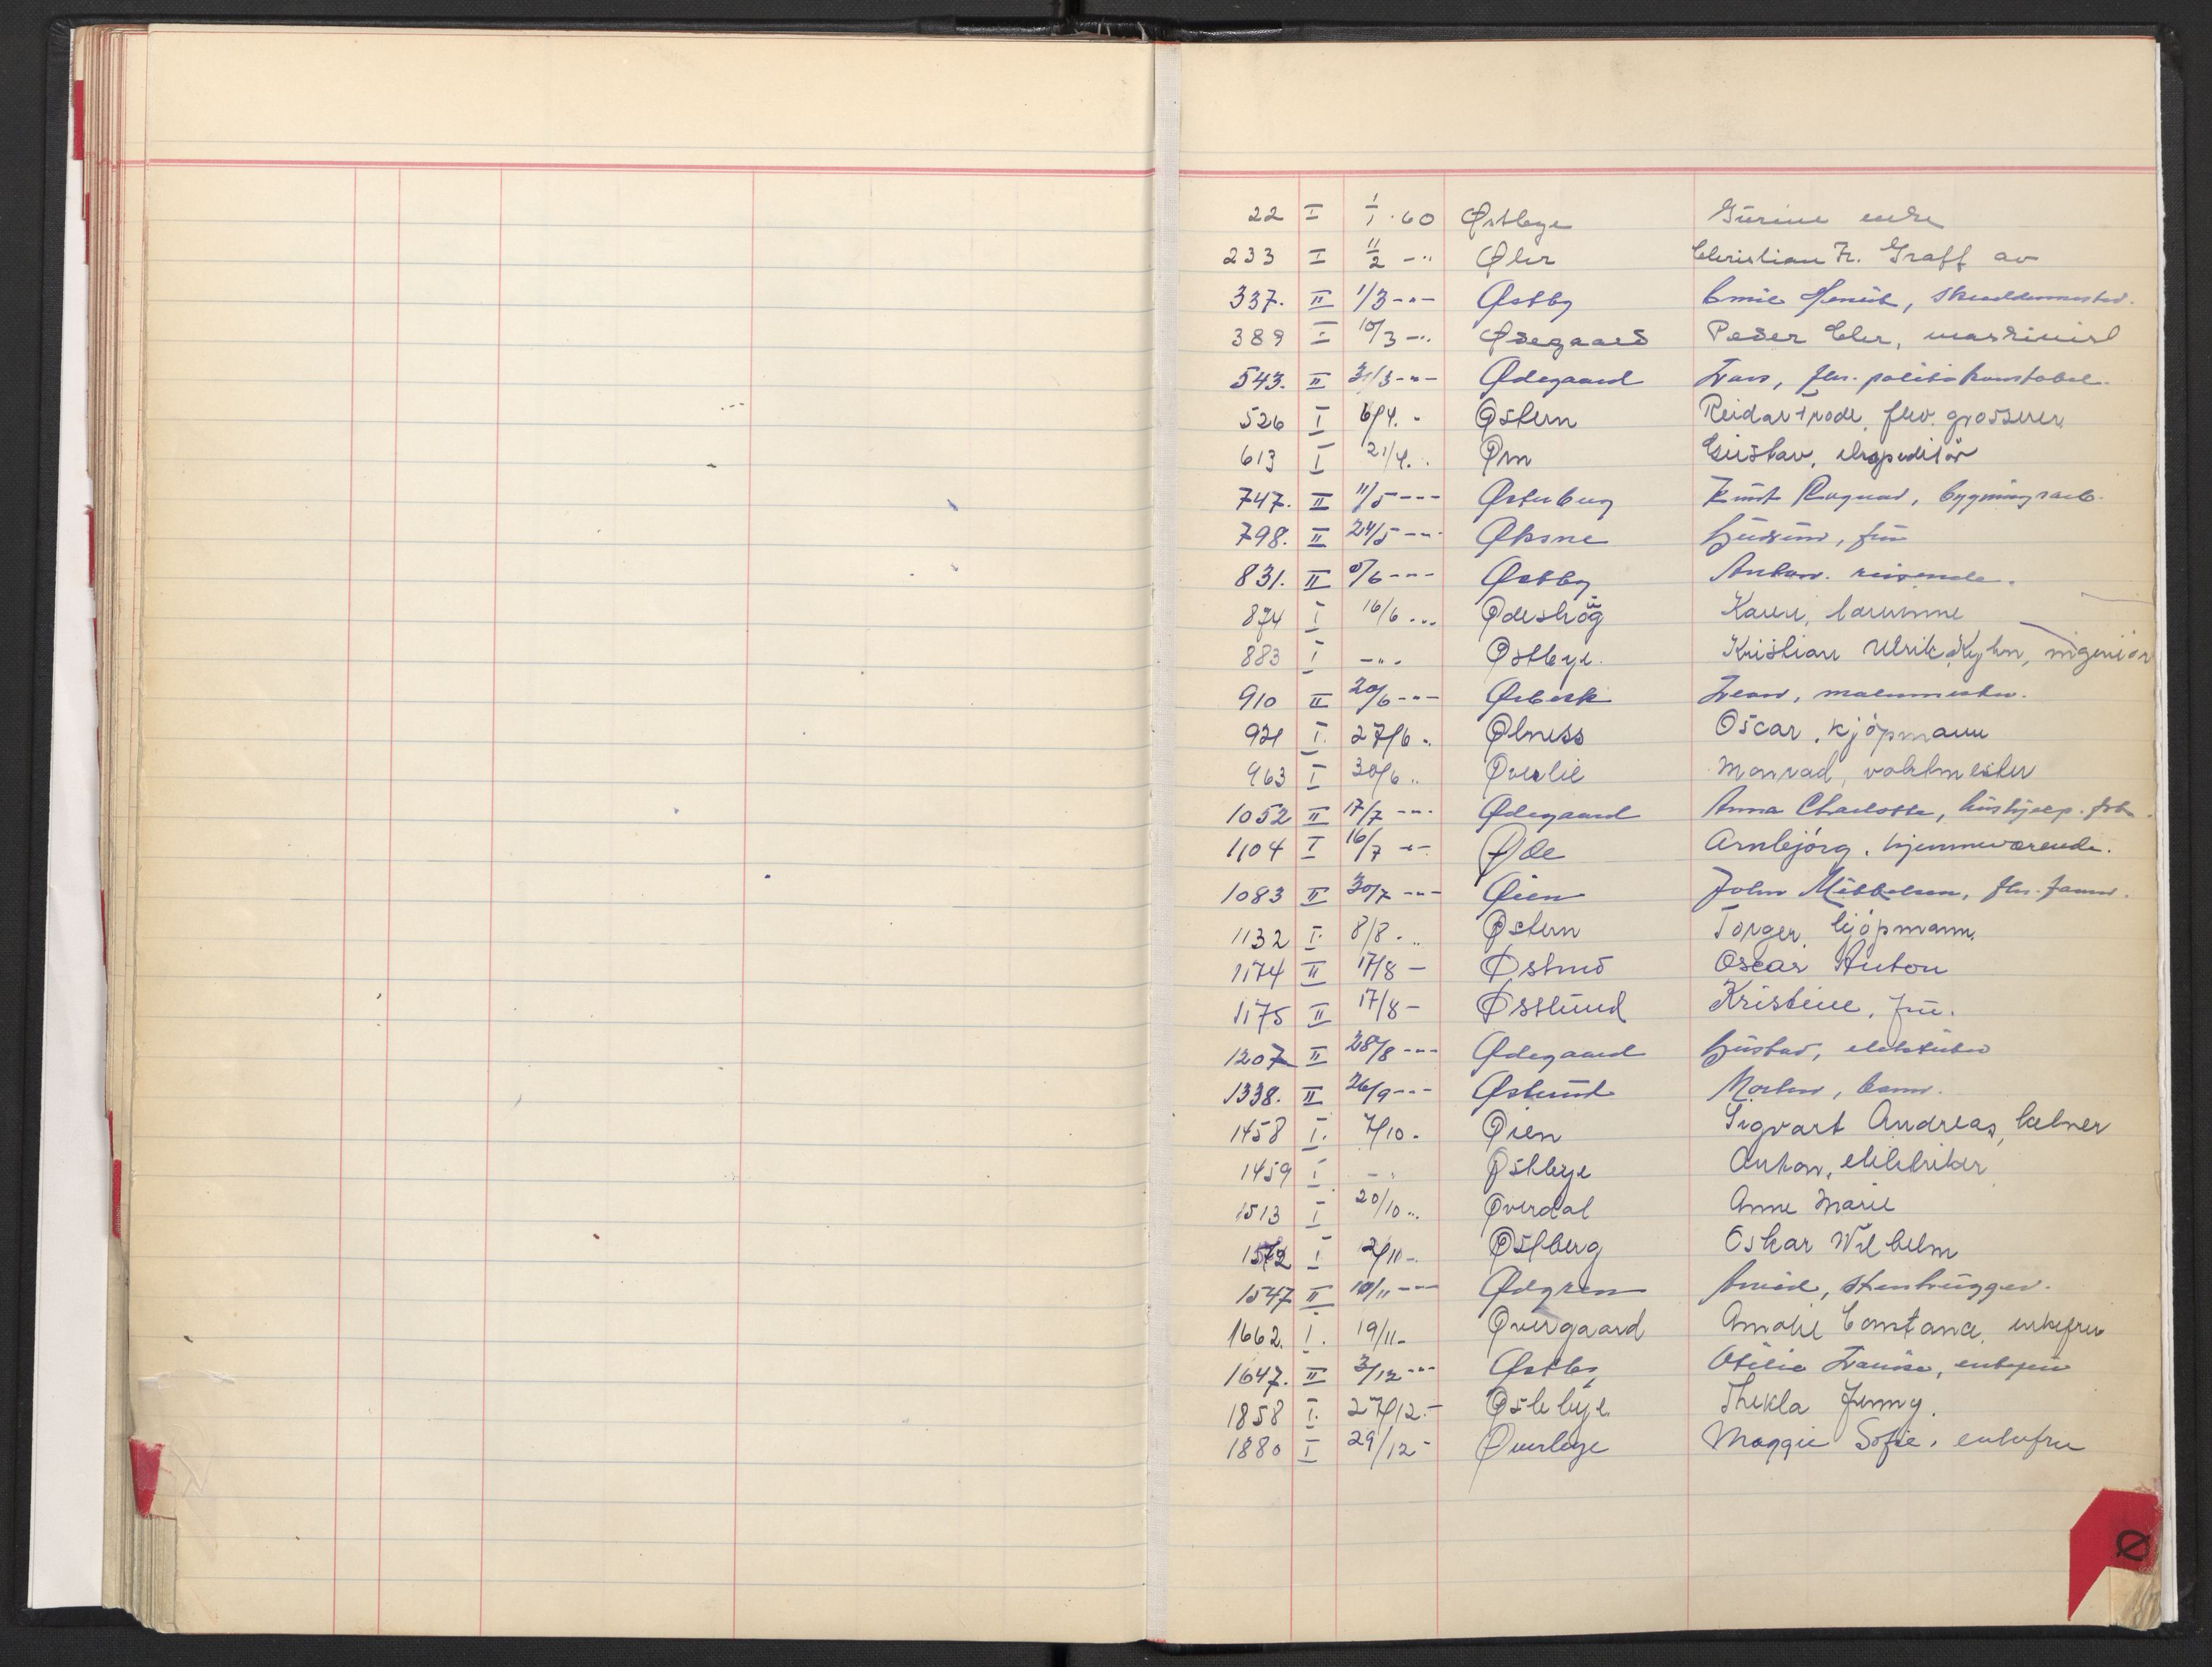 22 I 1/1 · 60 Østbye Gurine enke
233 I 11/2 -"- Øhr Christian Fr. Graff av
337. II 1/3 -"- Østby Emil
389 I 10/3 -"- Ødegaard Peder Chr, maskinist
543. II 31/3 -"- Ødegaard Lars, fhv. politikonstabel.
526 I 6/4. " Østern Reidar Frode, fhv. grosserer
613 I 21/4. " Ørn Gustav, ekspeditør
747. II 11/5 -"- Østerberg Knut Ragnar, bygningsarb.
798. II 24/5 -"- Øksne Gudrun, fru
831. II /6 -"- Østby Anton. reisende.
874 I 16/6 -"- Ødeshög Karen, lærerinne
883 I -"- Østbye. Kristian Ulrik Kyhn, ingeniør
910 II 20/6 -"- Ørbeck malermester.
921 I. 27/6 " Ølness Oscar, kjøpmann
963 I 30/6 " Øverlie Monrad, vaktmester
1052 II 17/7 -"- Ødegaard Anna Charlotte, hushjelp.
1104 I 16/7 -"- Øde Arnbjørg, hjemmeværende.
1083 II 30/7 -"- Øien John Mikkelsen, fhv.
1132 I. 8/8 - " Østern Torger, kjøpmann
1174 II 17/8 - Østmo Oscar Anton
1175 II 17/8 - Østlund Kristine, fru.
1207 II 28/8 -"- Ødegaard Gustav, elektriker
1338. II 26/9 -"- Østlund Morten,
1458 I. 7/10 - Øien Sigvart Andreas, kelner
1459 I -"- Østbye Anton, elektriker
1513 I 20/10 " Øverdal Anne Marie
1572 I 2/11 - Østberg Oskar Wilhelm
1547 II 10/11 -"- Ødgren stenhugger.
1662. I. 19/11 - Øvergaard Amalie Constance, enkefru
1647. II 3/12 -"- Østby Otilie Louise, enkefru
1858 I. 27/12 - Østebye Thekla Jenny.
1880 I 29/12 - Øverbye Maggie Sofie, enkefru
Ø